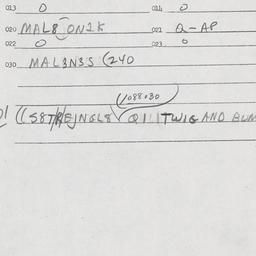 013 0 014 0
020 MAL8 ON2K 021 Q-AP
022 0 023 0
030 MAL3N3S (240
1088+30
((S8T/R/EJNGL8 Q1 | TWIG AND BUM